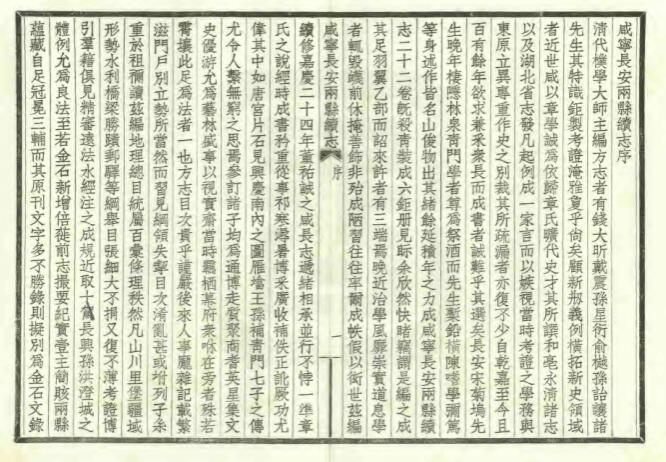 咸寧長安兩縣續志序
清代樸學大師主編方志者有錢大昕戴震孫星衍俞樾孫詒讓諸
先生其特識鉅製考證淹雅敻乎尚矣顧新刱義例橫拓新史領域
者近世咸以章學誠為依歸章氏曠代史才其所譔和亳永清諸志
以及湖北省志發凡起例成一家言而以媲視當時考證之學務與
東原立異專重作史之別裁其所疏漏者亦復不少自乾嘉至今且
百有餘年欲求兼釆衆長而成書者誠難乎其選矣長安宋菊塢先
生晚年棲隱林泉青門學者尊為祭酒而先生槧鉛橫陳嗜學彌篤
等身述作皆名山俊物出其緒餘延積年之力成咸寧長安兩縣續
志二十二卷旣殺青裝成六鉅册見眎余欣然快睹竊謂是編之成
其足羽翼乙部而詔來許者有三端焉晚近治學風靡崇實道息學
者輒毀謨前休掩善飾非殆成陋習往往率爾成帙假以衒世茲編
咸寧長安兩縣續志 序 一
續修嘉慶二十四年董祐誠之咸長志遞緒相承並行不悖一準章
氏之說經時成書矜重從事祁寒溽暑博釆廣收補佚正訛厥功尤
偉其中如唐宮片石見興慶南內之圖雁塔王孫補青門七子之傳
尤令人繫無窮之思焉參訂諸子均為通博走質聚商耆英星集文
史優游尤為藝林盛事以視實齋當時羈栖幕府衆咻在旁者殊若
霄壤此足為法者一也方志目次貴乎謹嚴後來人事龐雜記載繁
滋門戶別立勢所當然而習見綱領失挈目次淆亂甚或坿列子糸
重於祖禰讀茲編地理總目統屬百彙條理秩然凡山川里堡疆域
形勢水利橋梁勝蹟郵驛等綱舉目張細大不捐又復不薄考證博
引羣籍俱見精審遠法水經注之成規近取十萬長興孫洪澄城之
體例尤為良法至若金石新增倍蓰前志撮要紀實壹主簡賅兩縣
蘊藏自足冠冕三輔而其原刊文字多不勝錄則擬別為金石文錄